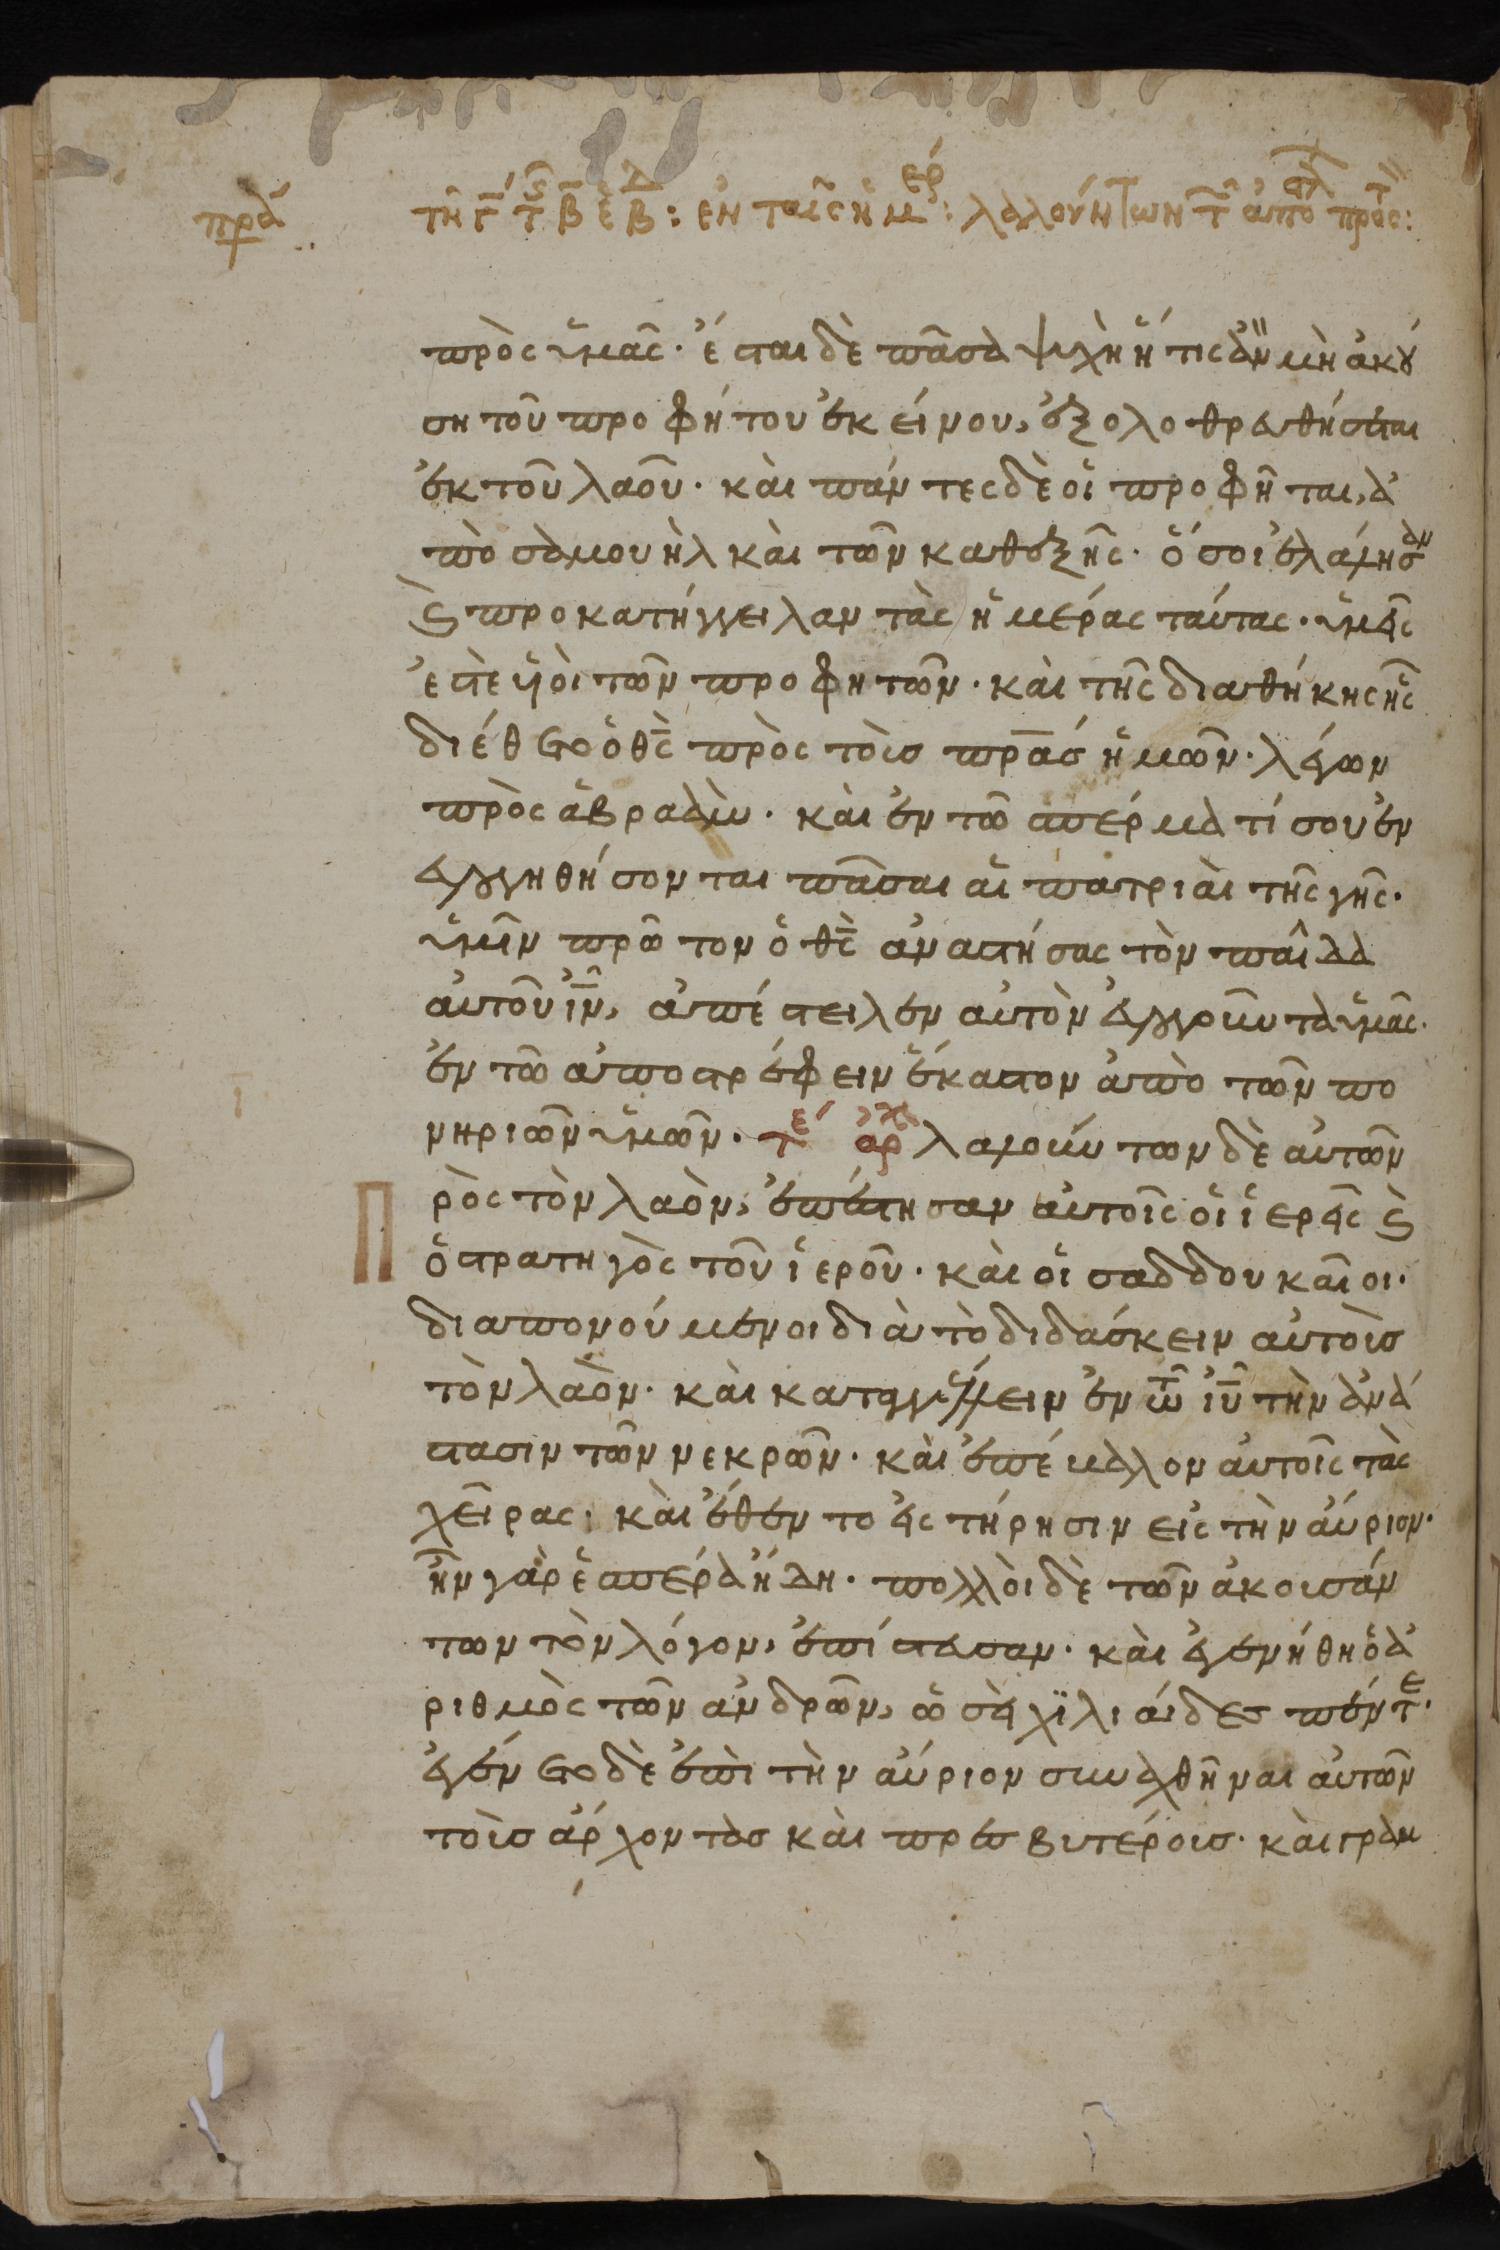 πρα τῆ γ τ ς β ε β δ: ἐν ταῖς ἡμερ: λαλούντων τ αποστλ πρὸς τ:
πρὸς ὑμᾶς· ἔσται δὲ πᾶσα ψυχὴ ἥτις ἂν μὴ ἀκού
ση τοῦ προφήτου ἐκείνου, ἐξολοθρευθήσεται
ἐκ τοῦ λαοῦ· καὶ πάντες δὲ οἱ προφῆται, ἀ
πὸ σαμουὴλ καὶ τῶν καθεξῆς· ὅσοι ἐλάλησαν
ϗ προκατήγγειλαν τὰς ἡμέρας ταύτας· ὑμεῖς
ἐστὲ υἱοὶ τῶν προφητῶν· καὶ τῆς διαθήκης ἧς
διέθετο ὁ θς πρὸς τοὺς πρας ἡμῶν· λέγων
πρὸς ἀβραάμ· καὶ ἐν τῶ σπέρματί σου ἐν
ευλογηθήσονται πᾶσαι αἱ πατριαὶ τῆς γῆς·
ὑμῖν πρῶτον ὁ θς ἀναστήσας τὸν παῖδα
αὐτοῦ ιν, ἀπέστειλεν αὐτὸν εὐλογοῦντα ὑμᾶς·
ἐν τῶ ἀποστρέφειν ἕκαστον ἀπὸ τῶν πο
νηριῶν ὑμῶν· τε αρχ λαλούντων δὲ αὐτῶν
Πρὸς τὸν λαὸν, ἐπέστησαν αὐτοῖς οἱ ἱερεῖς ϗ
ὁ στρατηγὸς τοῦ ἱεροῦ· καὶ οἱ σαδδουκαῖοι·
διαπονούμενοι διὰ τὸ διδάσκειν αὐτοὺς
τὸν λαὸν· καὶ καταγγέλλειν ἐν τῶ ιυ τὴν ἀνά
στασιν τῶν νεκρῶν· καὶ ἐπέβαλον αὐτοῖς τὰς
χεῖρας· καὶ ἔθεντο εἰς τήρησιν εἰς τὴν αὔριον·
ἦν γὰρ ἑσπέρα ἤδη· πολλοὶ δὲ τῶν ἀκουσάν
των τὸν λόγον, ἐπίστευσαν· καὶ ἐγενήθη ὁ ἀ
ριθμὸς τῶν ἀνδρῶν, ὡσεὶ χϊλιάδες πέντε·
ἐγένετο δὲ ἐπὶ τὴν αὔριον συναχθῆναι αὐτῶν
τοὺς ἄρχοντας καὶ πρεσβυτέρους· καὶ γραμ